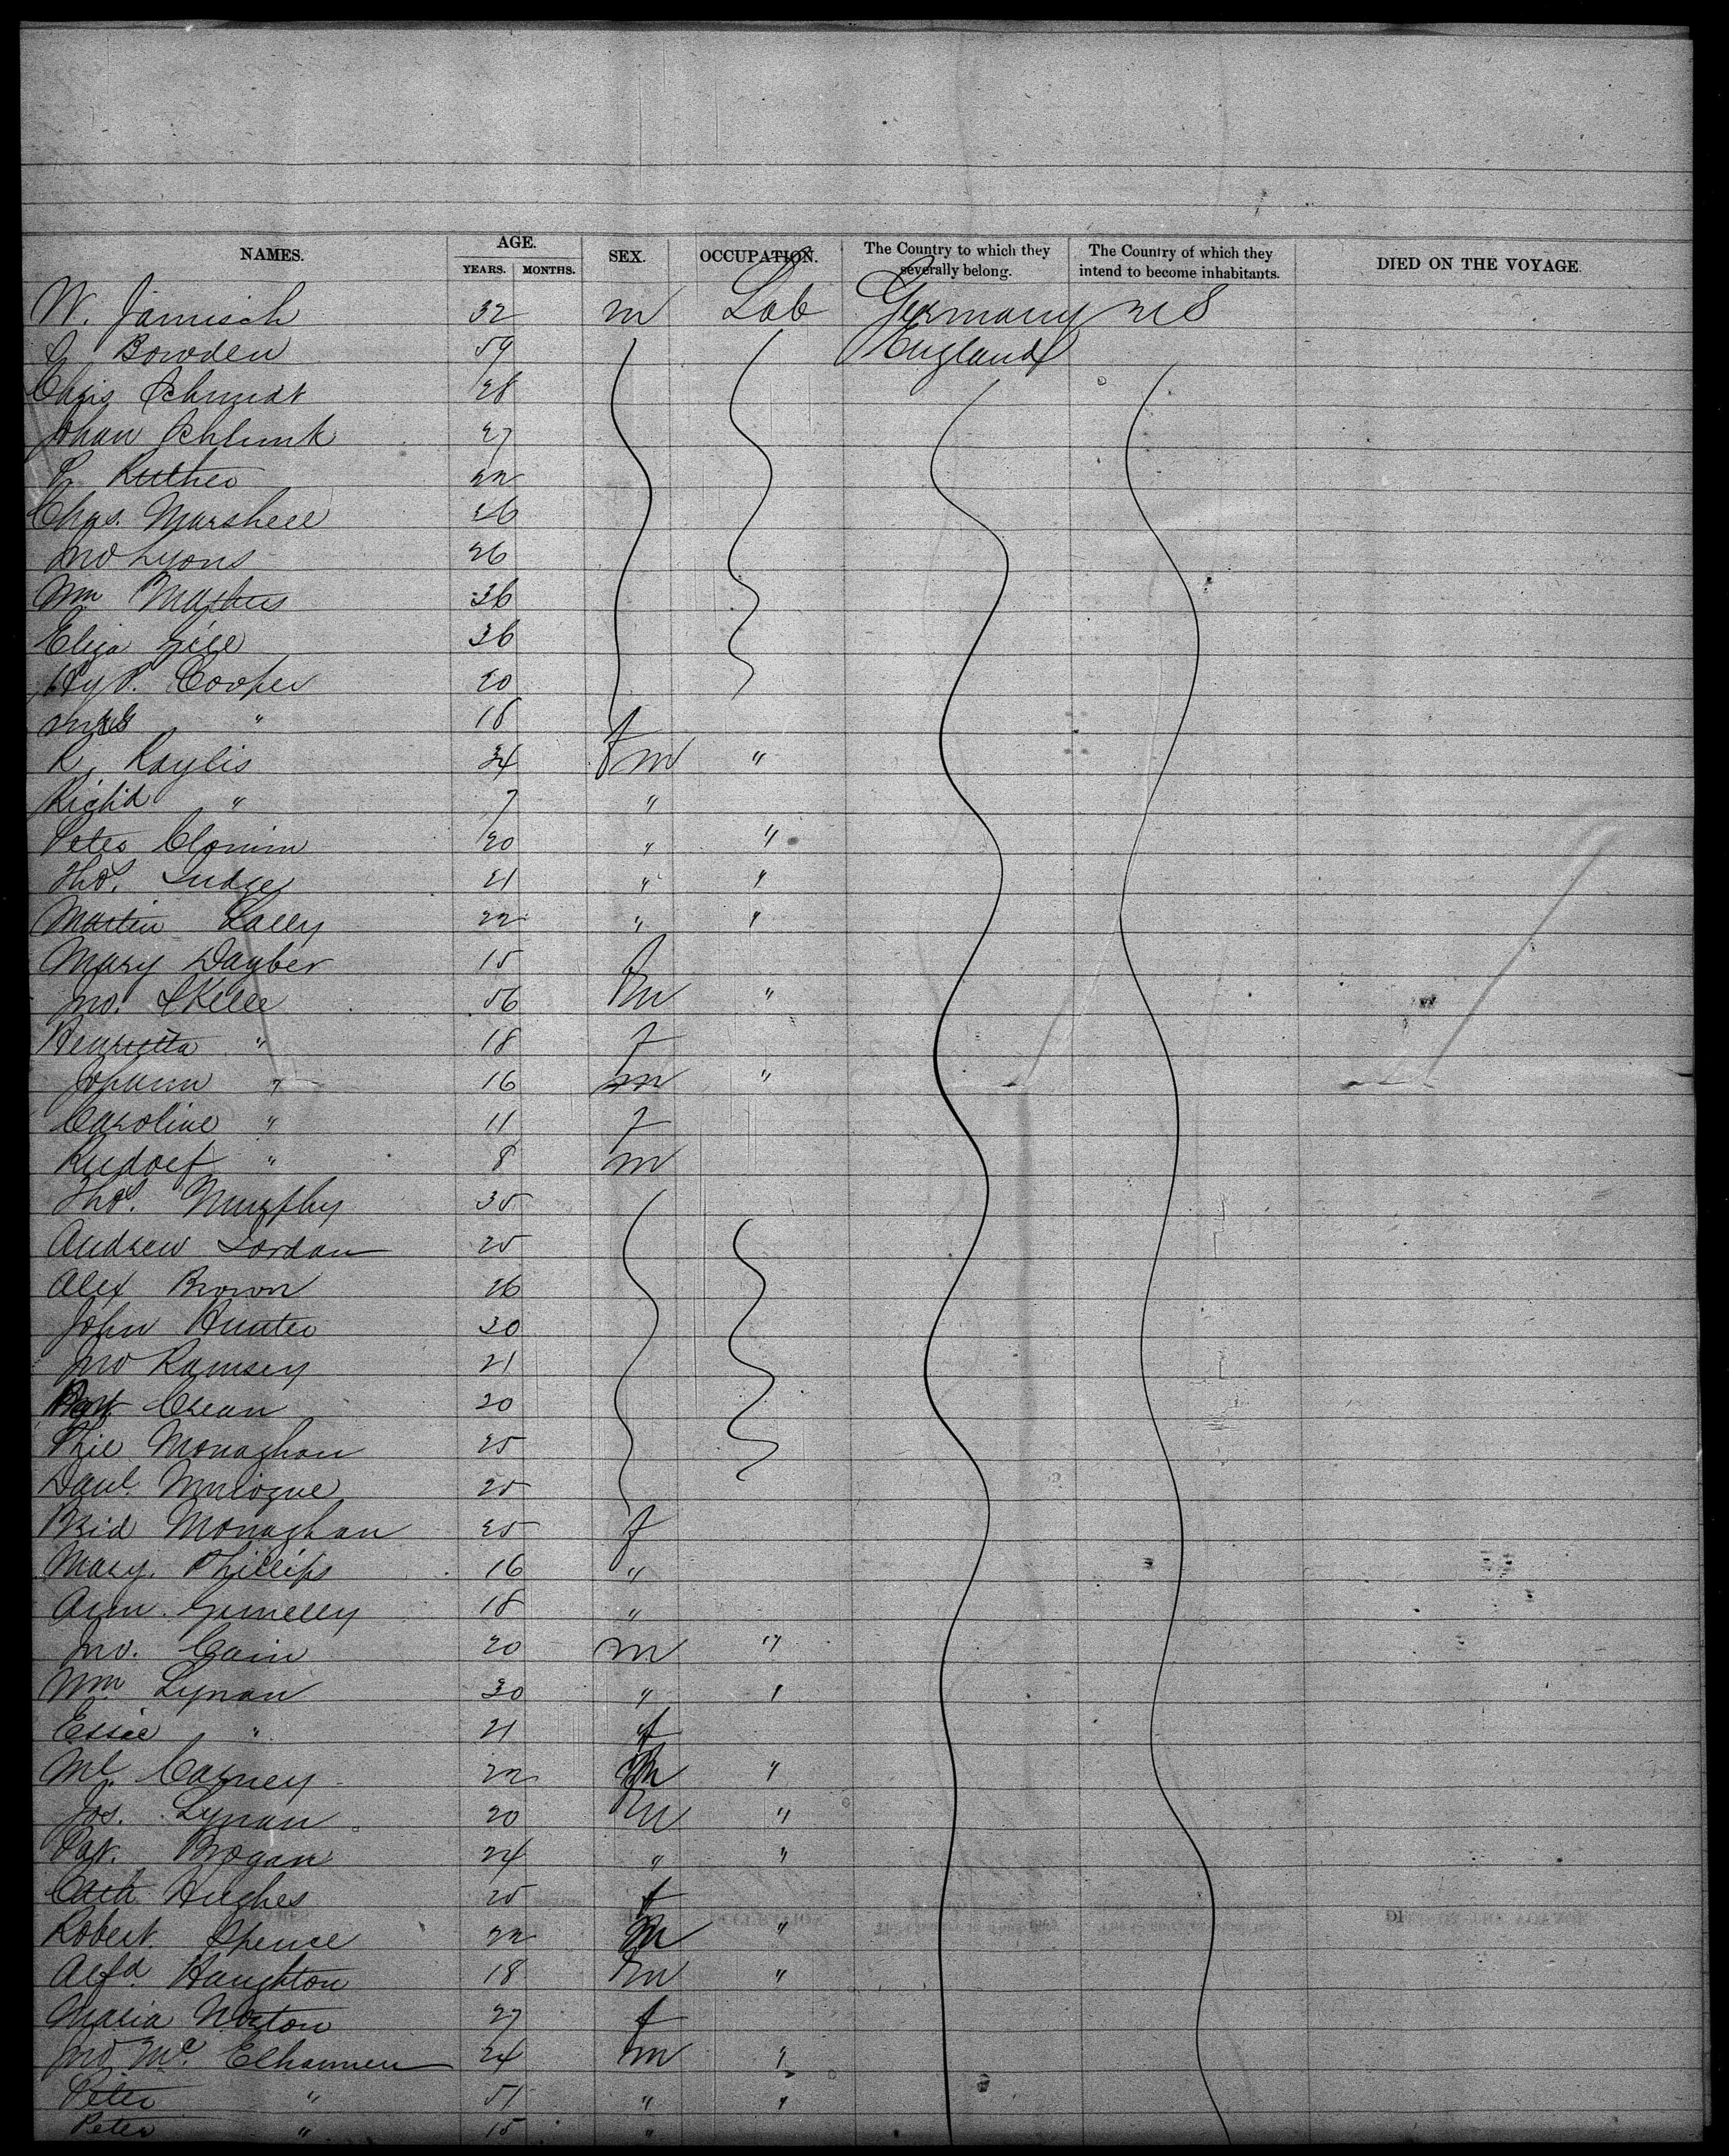 NAMES. AGE. SEX. OCCUPATION. The Country to which they severally belong. The Country of which they intend to become inhabitants. DIED ON THE VOYAGE.
YEARS. MONTHS.
W. Jamisch 32 m Lab Germany U S
Bowden 59 England
Chris Schmidt 28
Johan Schlunk 27
22
Chas. Marshall 26
Jno Lyons 26
Wm 36
Eliza Gill 36
Hy P. Cooper 20
Mrs " 18 f
R. Raylis 34 m "
Richd " 7 "
Peter 20 " "
Thos. Judge 21 " "
Martin Lally 22 " "
Mary Dayber 15 f
Jno. Skelle 56 m "
Henrietta " 18 f
Johann " 16 m "
Caroline " 11 f
Rudolf " 8 m
Thos. Murphy 35
Andrew Jordan 25
Alex Brown 26
John Hunter 30
Jno Ramsey 21
Crean 20
Phil Monaghan 25
Danl. 25
Brid Monaghan 25 f
Mary Phillips 16 "
Ann 18 "
Jno. Cain 20 m "
Wm Lynan 30 " "
Essie " 21 f
Ml. Carney 22 m "
Jos. Lynan 20 m "
Pat. Brogan 24 " "
Cath Hughes 25 f
Robert. Spence 22 m "
Alfd. Haughton 18 m "
Maria Norton 27 f
Jno Mc. Elhannen 24 m "
Peter " 51 " "
Peter " 15 "